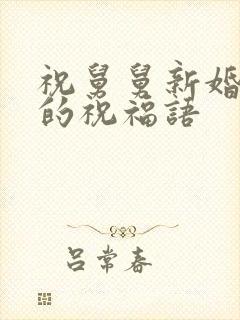 祝舅舅新婚
的祝福語
吕常春